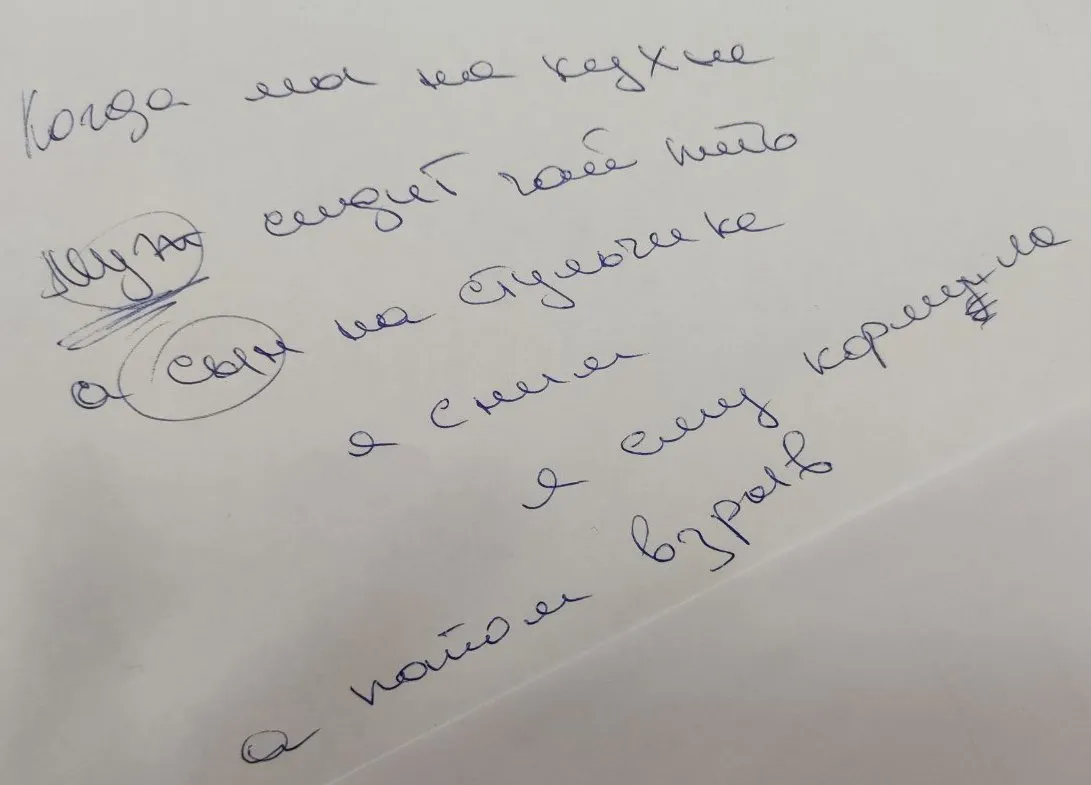 Когда мы на кухне
муж сидит чай пить
а сын на стульчике
я с ним
я ему кормила
а потом взрыв